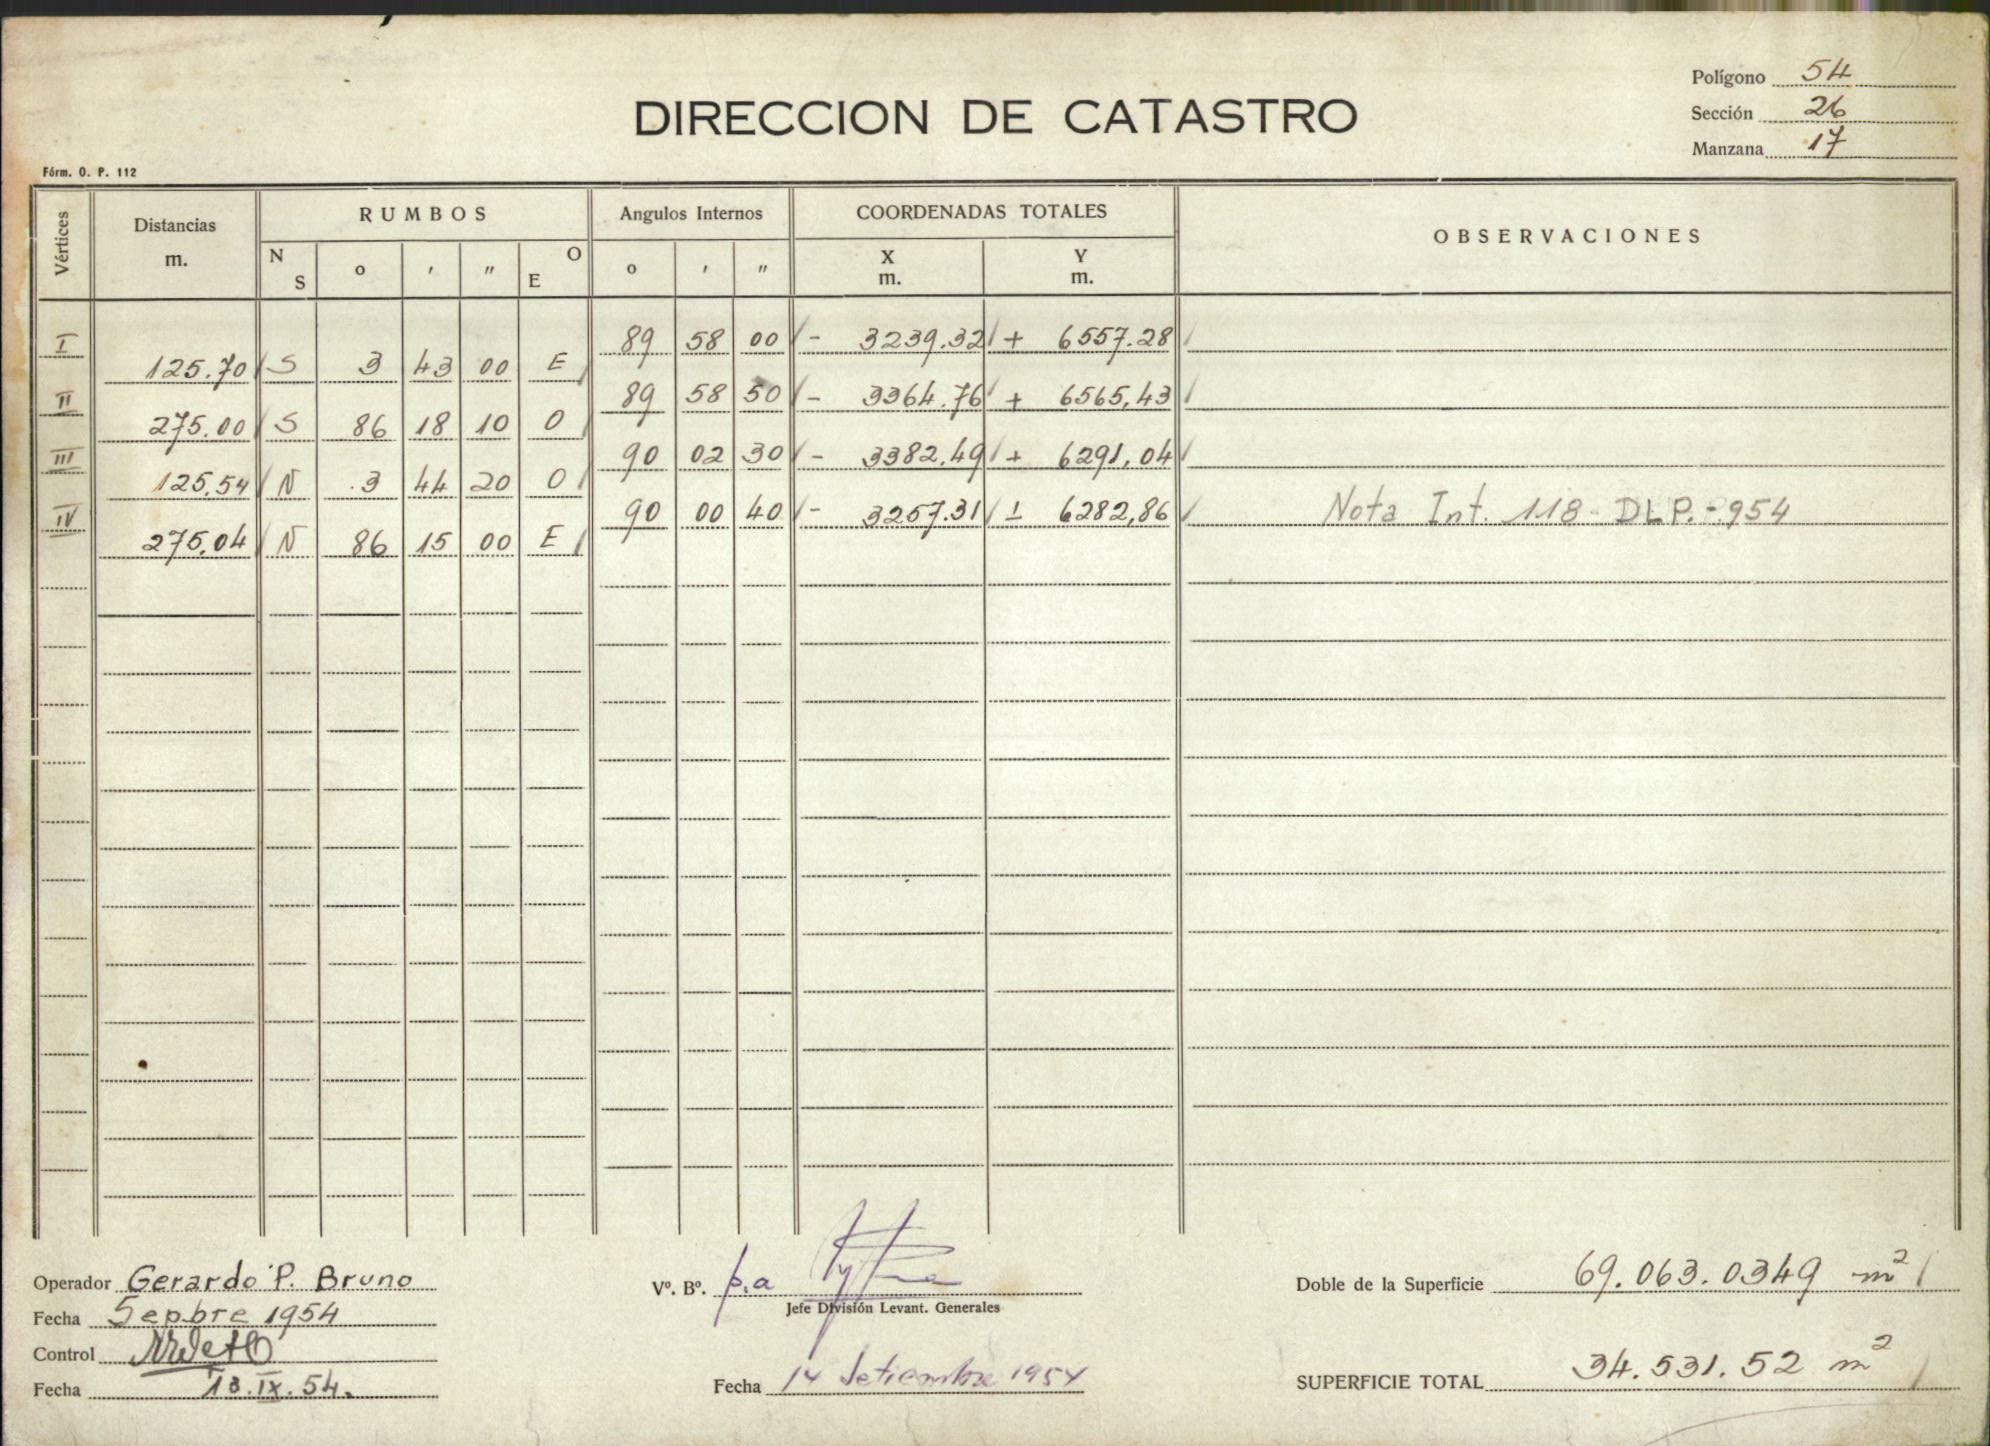 Polígono 54
DIRECCION DE CATASTRO
Sección 26
Manzana 17
Fórm. O. P. 112
Vértices Distancias m. RUMBOS Angulos Internos COORDENADAS TOTALES OBSERVACIONES
N S o ' " O E o ' " X m. Y m.
I 89 58 00 - 3239.32 + 6557.28
125.70 S 3 43 00 E
II 89 58 50 - 3364.76 + 6565,43
275.00 S 86 18 10 O
III 90 02 30 - 3382,49 + 6291,04
125,54 N 3 44 20 O
IV 90 00 40 - 3257.31 + 6282,86 Nota Int. 118 DLP.-954
275,04 N 86 15 00 E
Operador Gerardo P. Bruno
Fecha Sepbre 1954
Control
Fecha 13.IX.54.
Vº. Bº. p.a
Jefe División Levant. Generales
Fecha 14 Setiembre 1954
Doble de la Superficie 69.063.0349 m2
SUPERFICIE TOTAL 34.531.52 m2